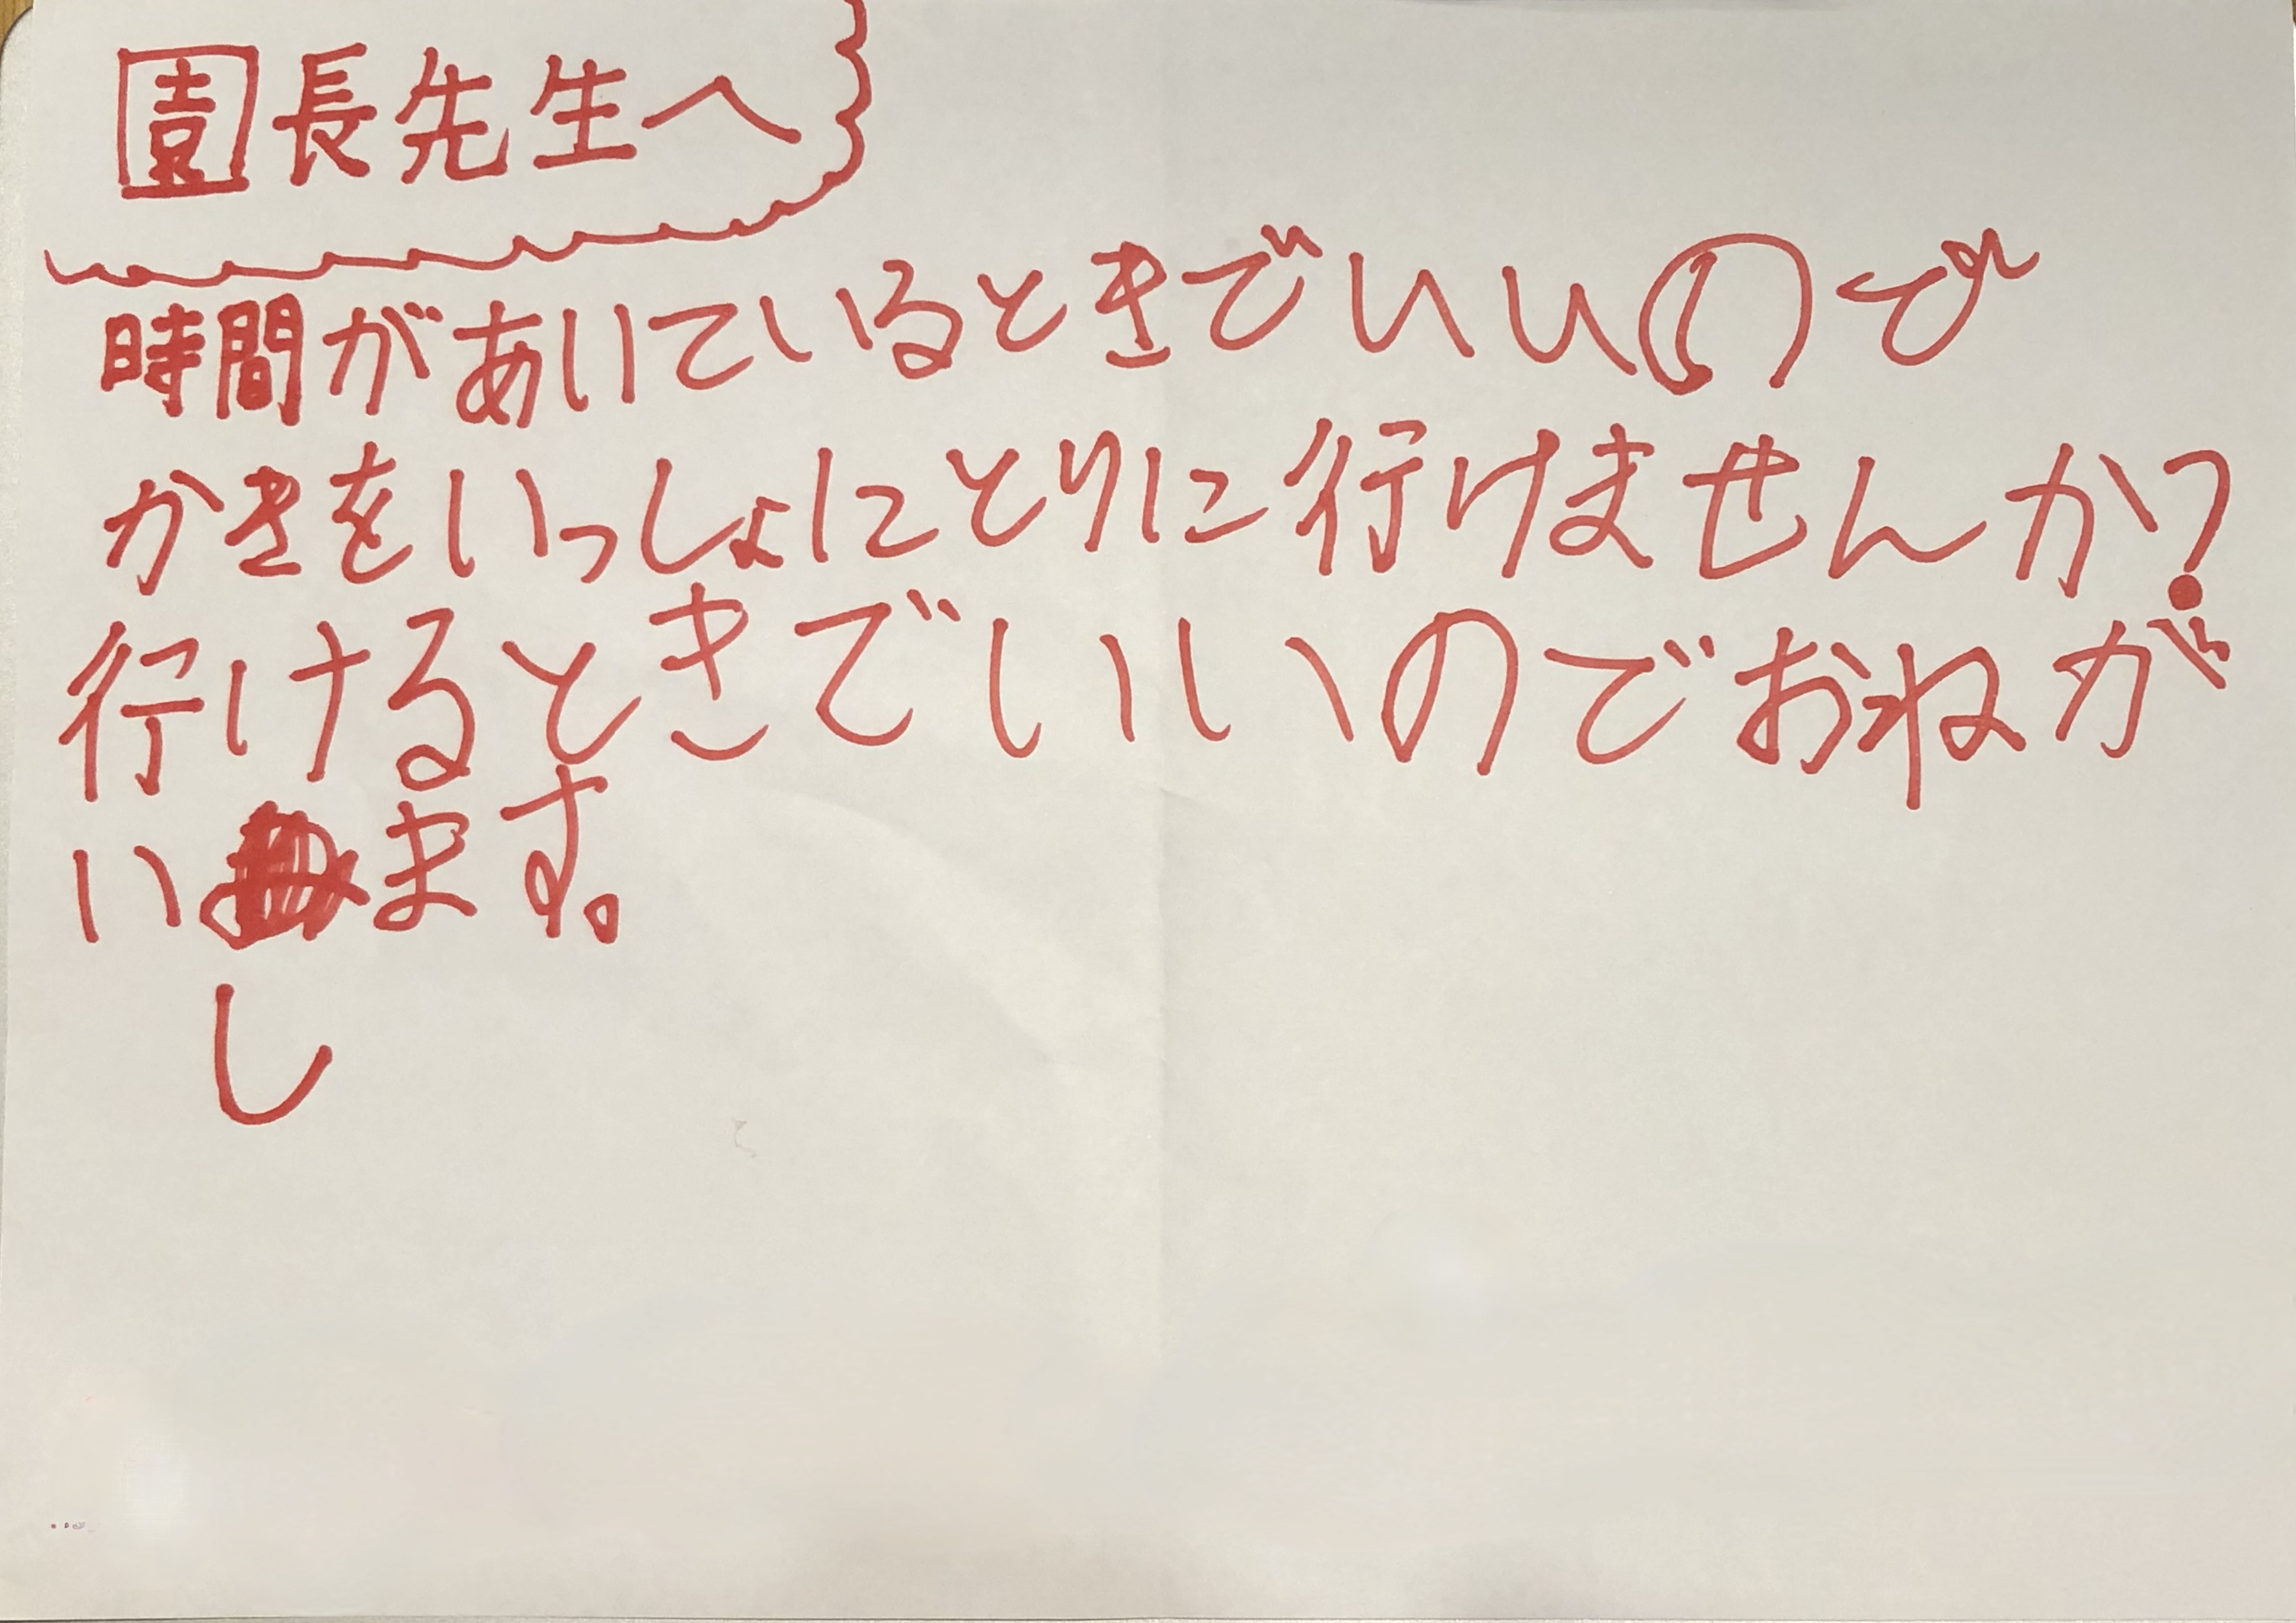 園長先生へ
時間があいているときでいいので
かきをいっしょにとりに行けませんか?
行けるときでいいのでおねが
います。
し